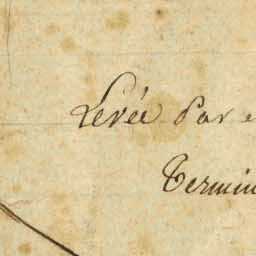 Levée Par e
Termin